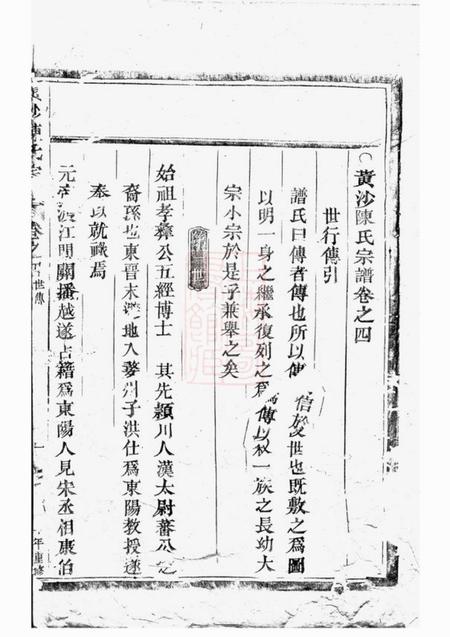 黃沙陳氏宗譜卷之四
世行傳引
譜氏曰傳者傳也所以傳信於後世也既敷之為圖
以明一身之繼承復列之為傳以敘一族之長幼大
宗小宗於是乎兼舉之矣
始祖孝彝公五經博士 其先潁川人漢太尉蕃公之
裔孫也東晉末 地入婺州子洪仕為東陽教授遂
奉以就職焉
元帝渡江間關播越遂占籍為東陽人見宋丞相康伯
黃沙陳氏宗 卷之 世傳
年重修